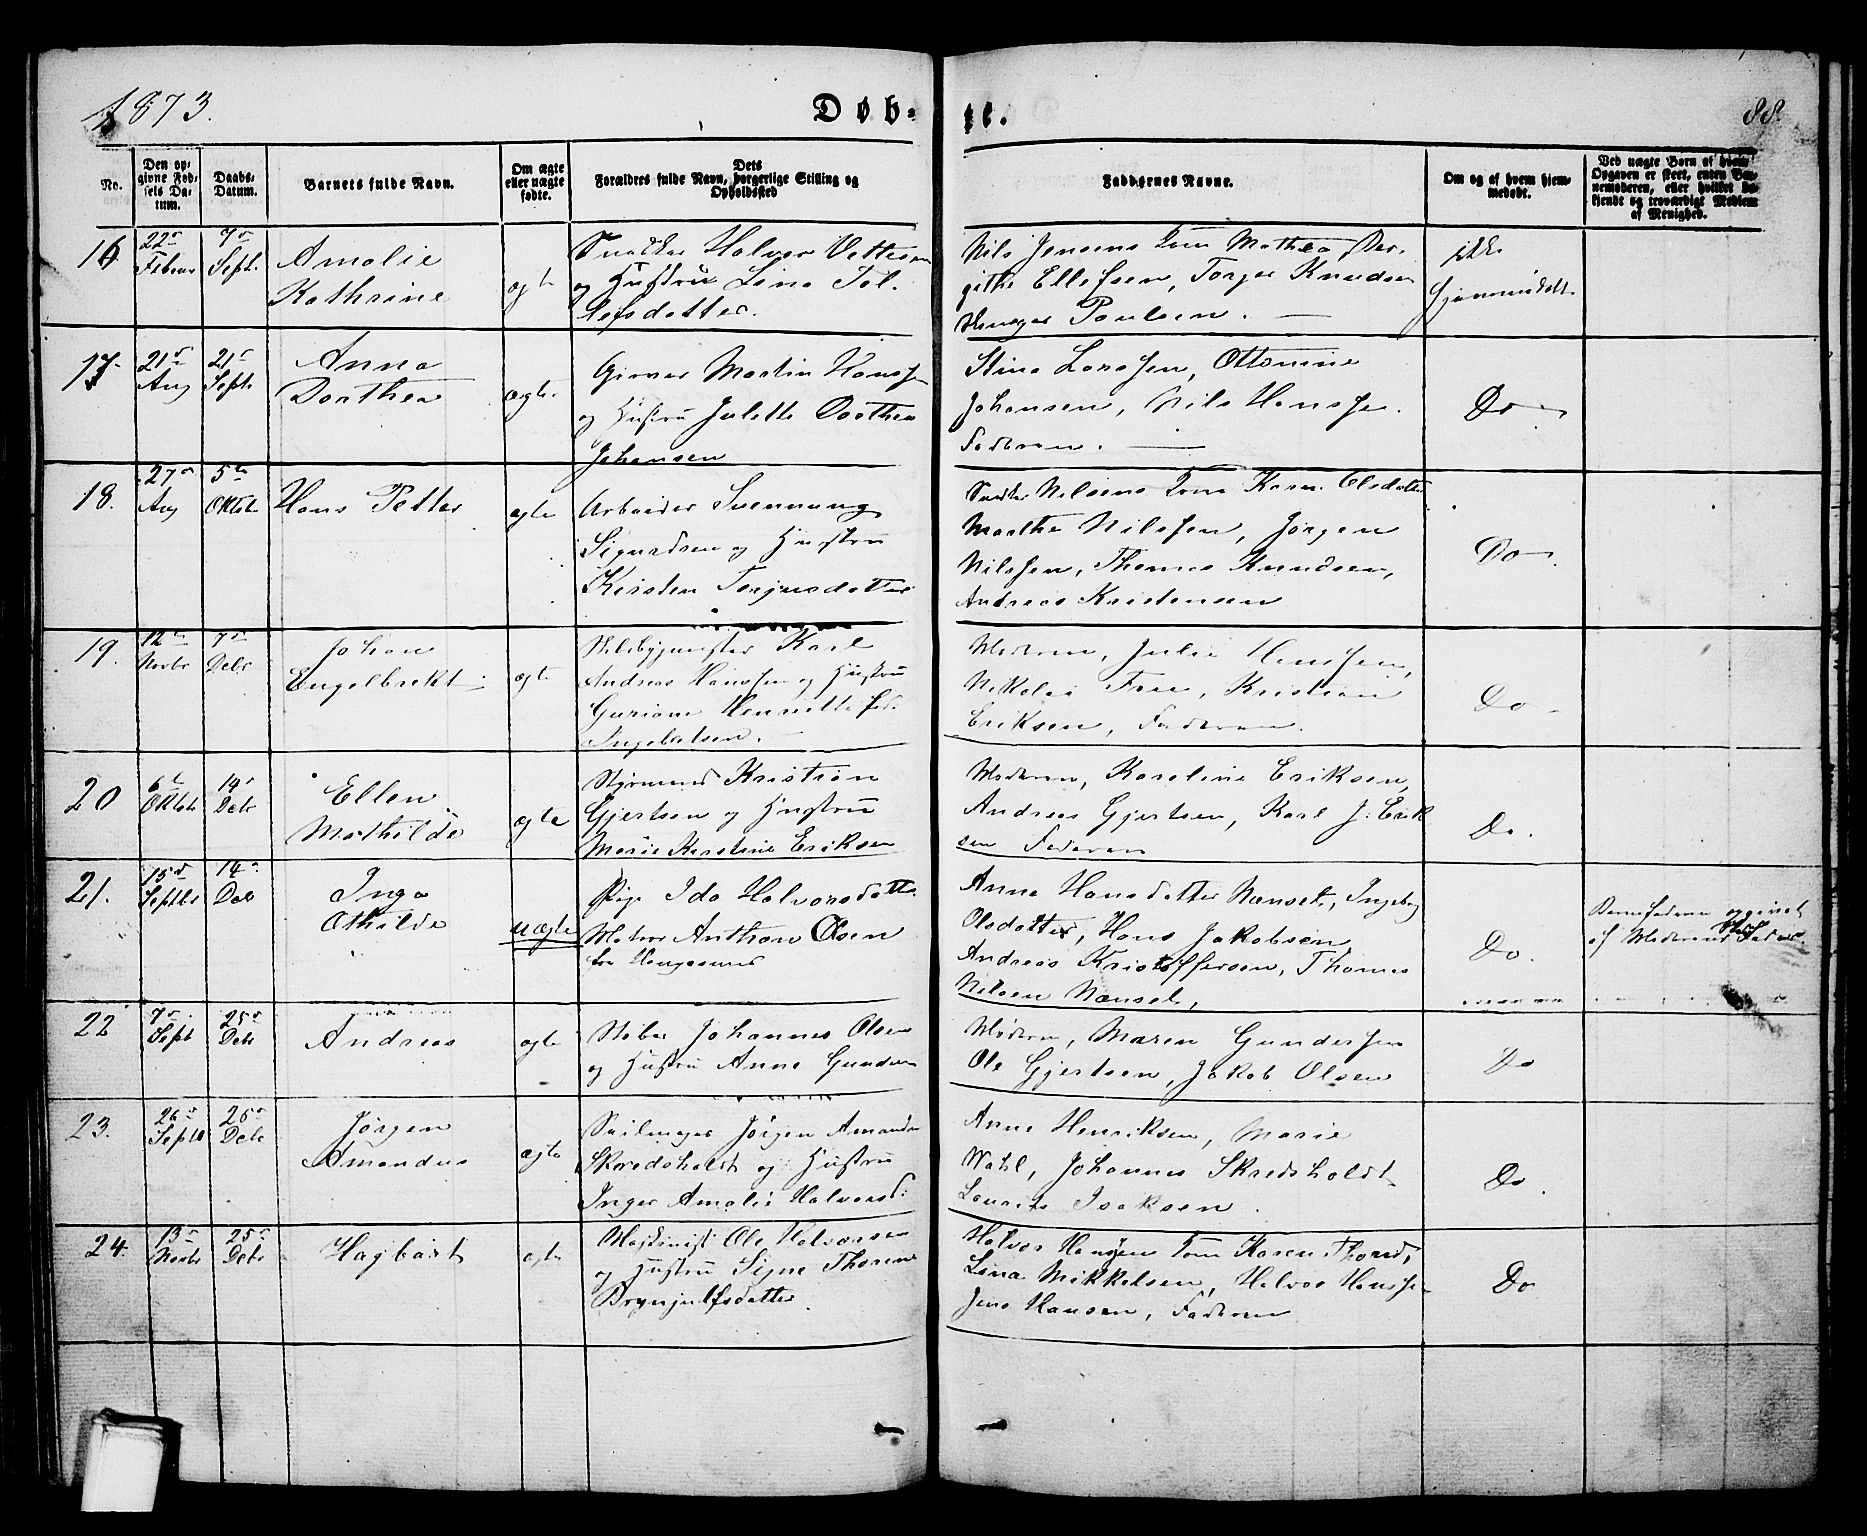 1873.
Døb-
te.
88.
No.
Den op-
givne Fød-
sels Da-
tum.
Daabs-
Datum.
Barnets fulde Navn.
Om ægte
eller uægte
fødte.
Dets
Forældres fulde Navn, borgerlige Stilling og
Opholdssted
Faddernes Navne.
Om og af hvem hjem-
medøbt.
Ved uægte Børn af hvem
Opgaven er skeet, enten Bar-
nemoderen, eller hvilket be-
kjendt og troværdigt Medlem
af Menighed.
16
22
Febru
7
Sept.
Amalie
Kathrine
ægte
Snedker Halvor Vettesen
og Hustru Lina Tol-
lefsdatter.
Nils Jensens Kone Mathea Ber-
githe Ellefsen, Torger Knudsen
Paulsen.
ikke
hjemmedøbt
17
21
Aug
21
Sept.
Anna
Dorthea
ægte
Martin Hanssen
og Hustru Julette Dorthea
Johansen
Stine Larssen, Ottomine
Johansen, Nils Hanssen.
Faderen.
Do
18.
27
Aug
5te
Oktob
Hans Petter
ægte
Arbeider Svennung
Sigurdsen og Hustru
Kirsten Torjusdatter
Nilsens Kone Karen Olsdatter
Marthe Nilssen, Jørgen
Nilssen, Thomas Knudsen,
Andreas Kristensen
Do
19.
12te
Novbr
7
Debr
Johan
Engelbrekt
ægte
Skibsbygmester Karl
Andreas Hanssen og Hustru
Henriette fød
Ingebretsen.
Moderen, Julie Hanssen,
Nikolai Kristian
Eriksen, Faderen.
Do
20
6te
Oktob
14
Debr
Ellen
Mathilde
ægte
Styrmand Kristian
Gjertsen og Hustru
Marie Kirstine Eriksen
Moderen, Karoline Eriksen,
Andreas Gjertsen, Karl J. Erik-
sen Faderen
Do.
21.
15d
Septbr
14
Debr
Inga
Othilde
uægte
Pige Ida Halvorsdatter
Matros Anthon Olsen
fra
Anne Hansdatter Nænset, Ingeborg
Olsdatter, Hans Jakobsen
Andreas Kristoffersen, Thomas
Nilsen Nænset,
Do.
Barnefaderen opgivet
af Moderens Fader.
22
7
Sept
25
Debr
Andreas
ægte
Johannes Olsen
og Hustru Anne Gundersen
Moderen, Maren Gundersen
Ole Gjertsen, Jakob Olsen
Do
23.
26
Septb
26
Debr
Jørgen
Amandus
ægte
Seilmager Jørgen Amandus
Skredsholdt og Hustru
Inger Amalie Halvorsd:
Anne Henriksen, Marie
Wahl, Johannes Skredsholdt
Laurits Isaksen.
Do.
24.
13
Novbr
25
Debr
Hagbart
ægte
Maskinist Ole Halvorsen
og Hustru Signe Thorine
Brynjulfsdatter
Halvor Hansens Kone Karen Thorsd,
Lina Mikkelsen, Halvor Hanssen
Jens Hansen, Faderen
Do